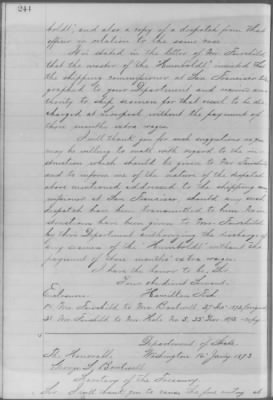 244
boldt", and also a copy of a dispatch from that
officer in relation to the same case.
It is stated in the letter of Mr Fairchild
that the master of the "Humboldt" insisted that
the shipping commissioner at San Francisco tele
graphed to your Department and received au
thority to ship seamen for that vessel to be dis
charged at Liverpool without the payment of
three months extra wages.
I will thank you for such suggestions as you
may be willing to make with regard to the in
struction which should be given to Mr Fairchild
and to inform me of the nature of the dispatch
above mentioned addressed to the shipping com
missioner at San Francisco should any such
dispatch have been transmitted to him. No in
structions have been given to Mr Fairchild
by this Department authorizing the discharge of
any seamen of the "Humboldt" without the
payment of three months' extra wages.
I have the honor to be, Sir,
Your obedient Servant,
Hamilton Fish
Enclosures:
Mr Fairchild to Mr Boutwell
Mr Fairchild to Mr Hale No 3,
Department of State
Washington 16" Jan'y 1873
The Honorable
George S. Boutwell
Secretary of the Treasury.
Sir: I will thank you to cause the free entry at